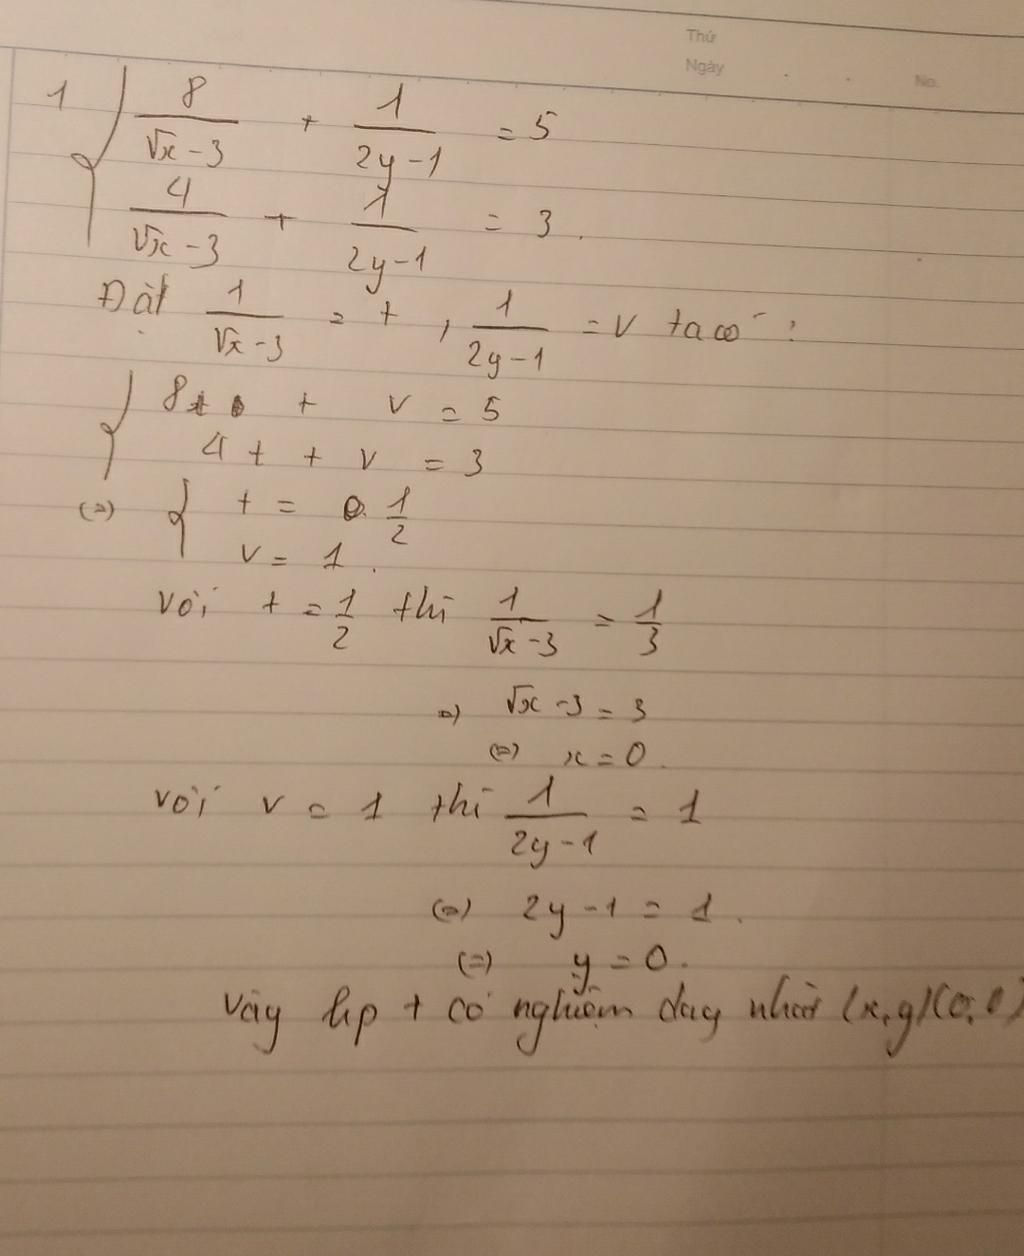 Thứ
Ngày
No.
1 { 8/(√x - 3) + 1/(2y - 1) = 5
4/(√x - 3) + 1/(2y - 1) = 3.
Đặt 1/(√x - 3) = t, 1/(2y - 1) = v ta có:
{ 8t + v = 5
4t + v = 3
(=) { t = 1/2
v = 1.
với t = 1/2 thì 1/(√x - 3) = 1/3
=) √x - 3 = 3
(=) x = 0.
với v = 1 thì 1/(2y - 1) = 1
(=) 2y - 1 = 1.
(=) y = 0.
vậy hp t có nghiệm day nhất (x, y)(0; 0)